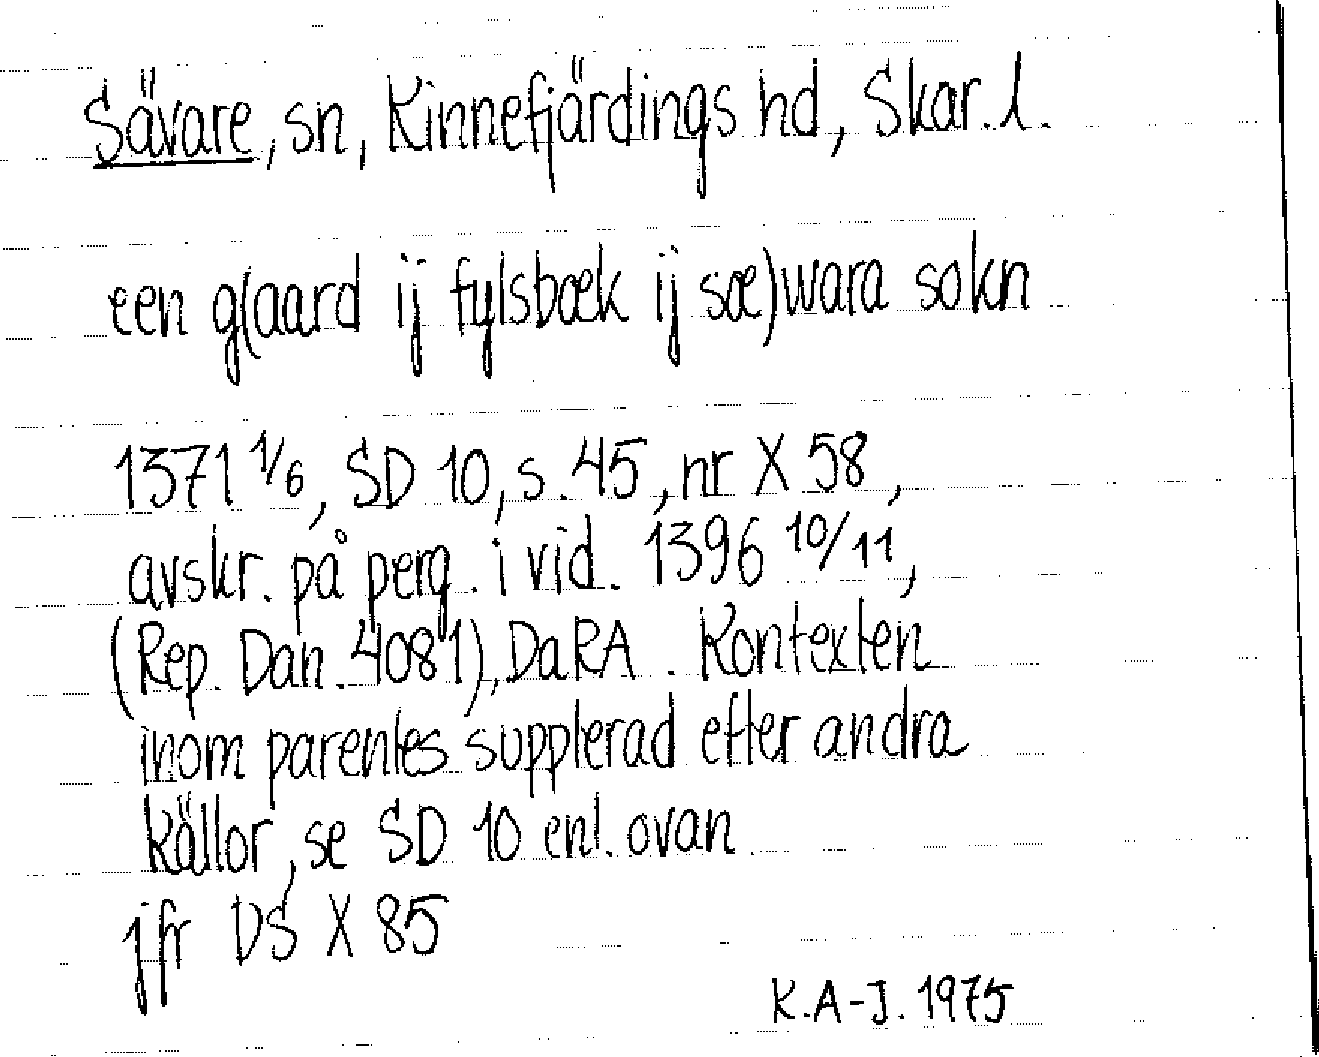 Sävare, sn, Kinnefjärdings hd, Skar. l.
een g(aard ij fylsbæk ij sæ)wara sokn
1371 1/6, SD 10, s. 45, nr X 58,
avskr. på perg. i vid. 1396 10/11,
(Rep. Dan. 4081), DaRA. Kontexten
inom parentes supplerad efter andra
källor, se SD 10 enl. ovan
jfr DS X 85
K.A-J. 1975